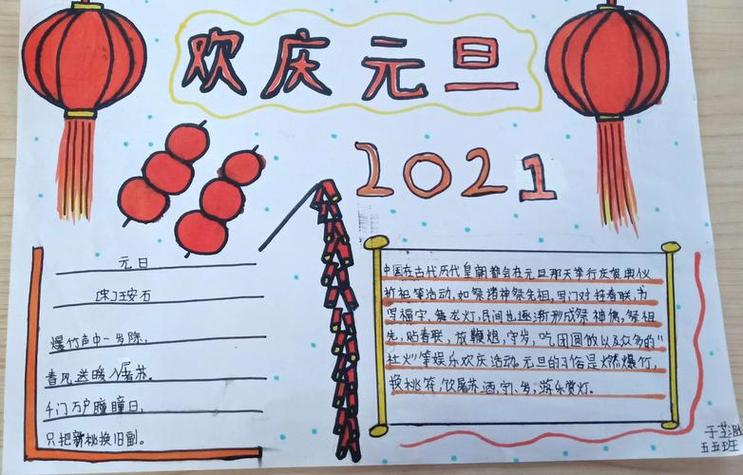 欢庆元旦
2021
元日
[宋]王安石
爆竹声中一岁除,
春风送暖入屠苏。
千门万户曈曈日,
只把新桃换旧副。
中国在古代历代皇朝都会在元旦那天举行庆贺典仪
祈祀等活动,如祭诸神祭先祖,写门对挂春联,书
写福字、舞龙灯,民间也逐渐形成祭神佛,祭祖
先,贴春联,放鞭炮,守岁,吃团圆饭以及众多的"
社火"等娱乐欢庆活动。元旦的习俗是燃爆竹,
换桃符,饮屠苏酒,守岁,游乐赏灯。
五五班